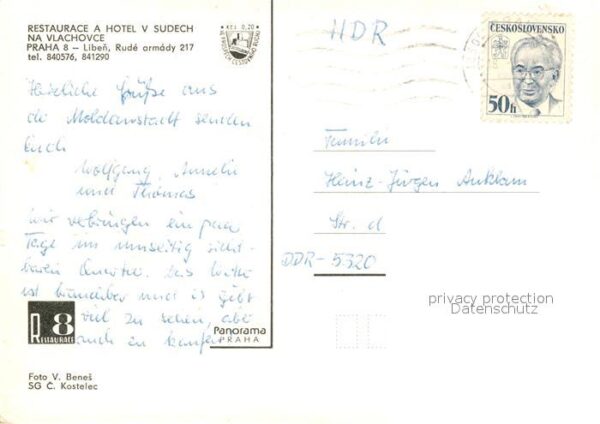 RESTAURACE A HOTEL V SUDECH
NA VLACHOVCE
PRAHA 8 – Libeň, Rudé armády 217
tel. 840576, 841290
Kčs 0,20
HDR
ČESKOSLOVENSKO
50h
Herzliche Grüße aus
de Moldaustadt senden
Euch
Wolfgang, Amelie
und Thomas
Wir verbringen ein paar
Tage im umseitig sicht-
baren Das Wetter
ist und es gibt
viel zu sehen, aber
auch zu kaufen
Familie
Heinz-Jürgen Anklam
Str. d
DDR-5320
R 8
RESTAURACE
Panorama
PRAHA
Foto V. Beneš
SG Č. Kostelec
privacy protection
Datenschutz